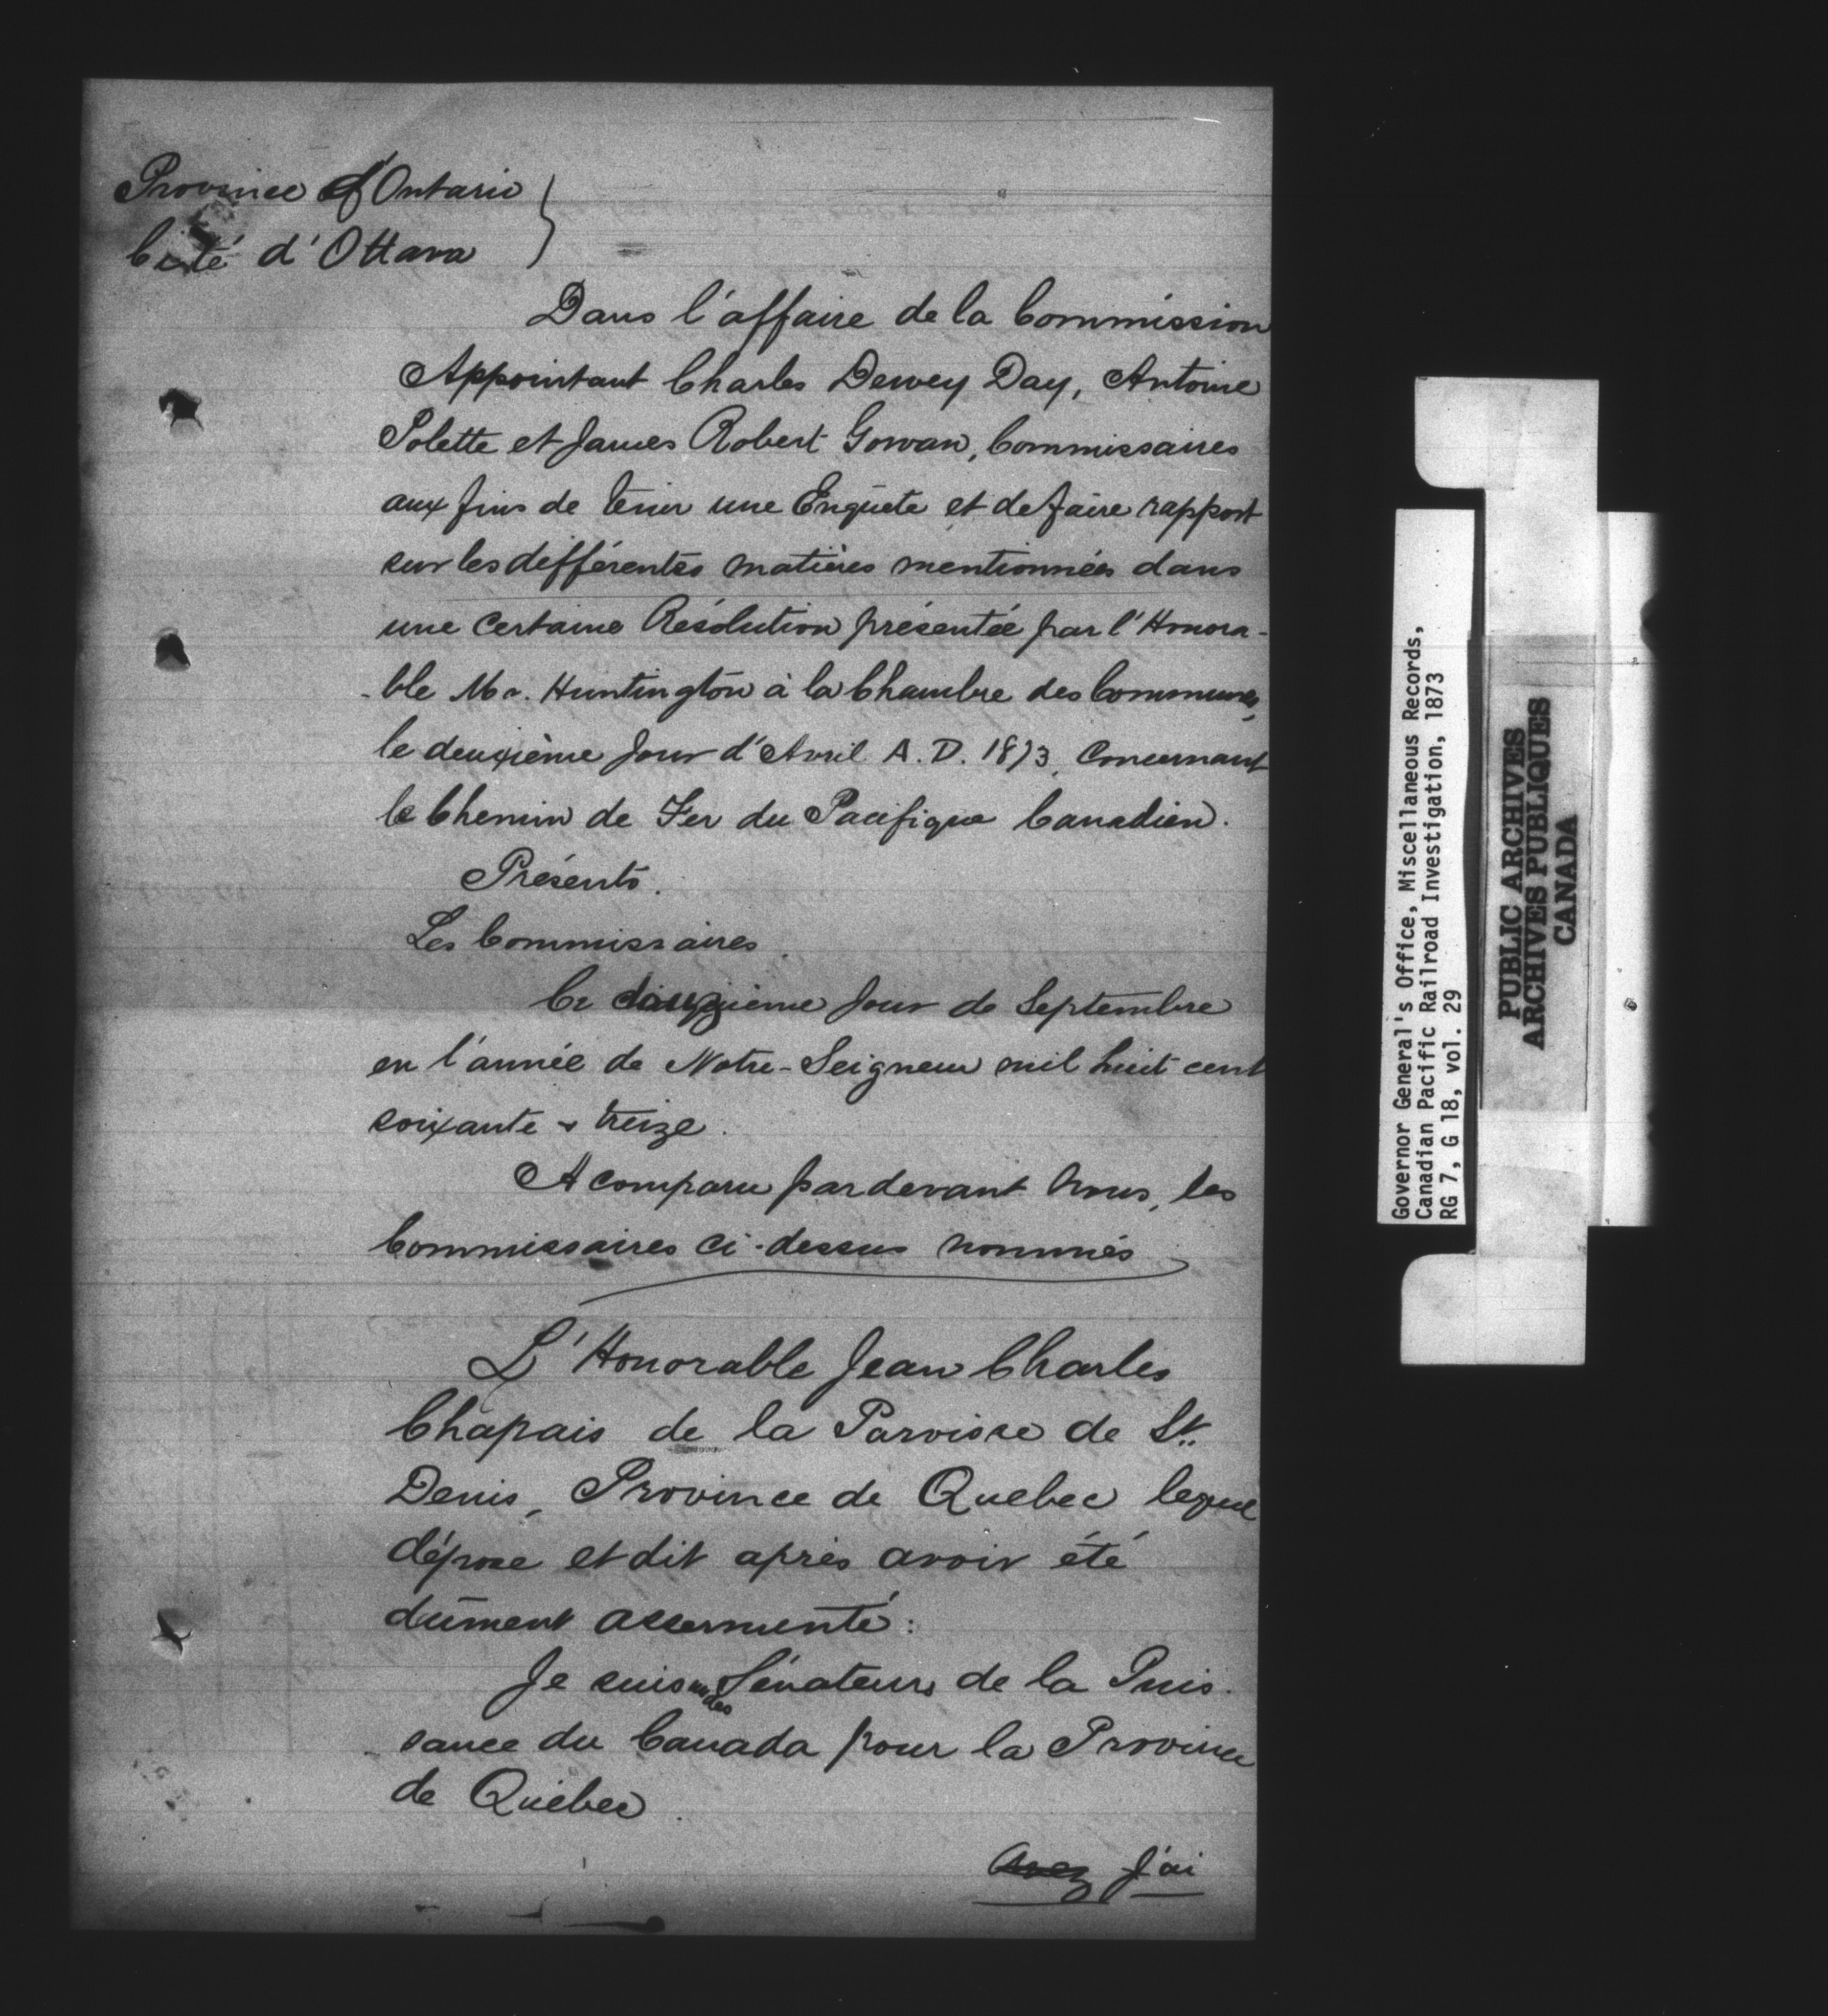 Province d'Ontario
Cité d'Ottawa
Dans l'affaire de la Commission
Appointant Charles Dewey Day, Antoine
Polette et James Robert Gowan, Commissaires
aux fins de tenir une Enquête et de faire rapport
sur les différentes matières mentionnées dans
une certaine Résolution présentée par l'Honora-
-ble Mr. Huntington à la Chambre des Communes,
le deuxième Jour d'Avril A. D. 1873, Concernant
le Chemin de Fer du Pacifique Canadien.
Présents.
Les Commissaires.
Ce jour de Septembre
en l'année de Notre-Seigneur mil huit cent
soixante & treize.
A comparu pardevant Nous, les
Commissaires ci-dessus nommés
L'Honorable Jean Charles
Chapais de la Paroisse de St.
Denis, Province de Quebec lequel
dépose et dit après avoir été
dûment assermenté:
Je suis un des Sénateurs de la Puis-
-sance du Canada pour la Province
de Québec.
Avez J'ai
Governor General's Office, Miscellaneous Records,
Canadian Pacific Railroad Investigation, 1873
RG 7, G 18, vol. 29
PUBLIC ARCHIVES
ARCHIVES PUBLIQUES
CANADA